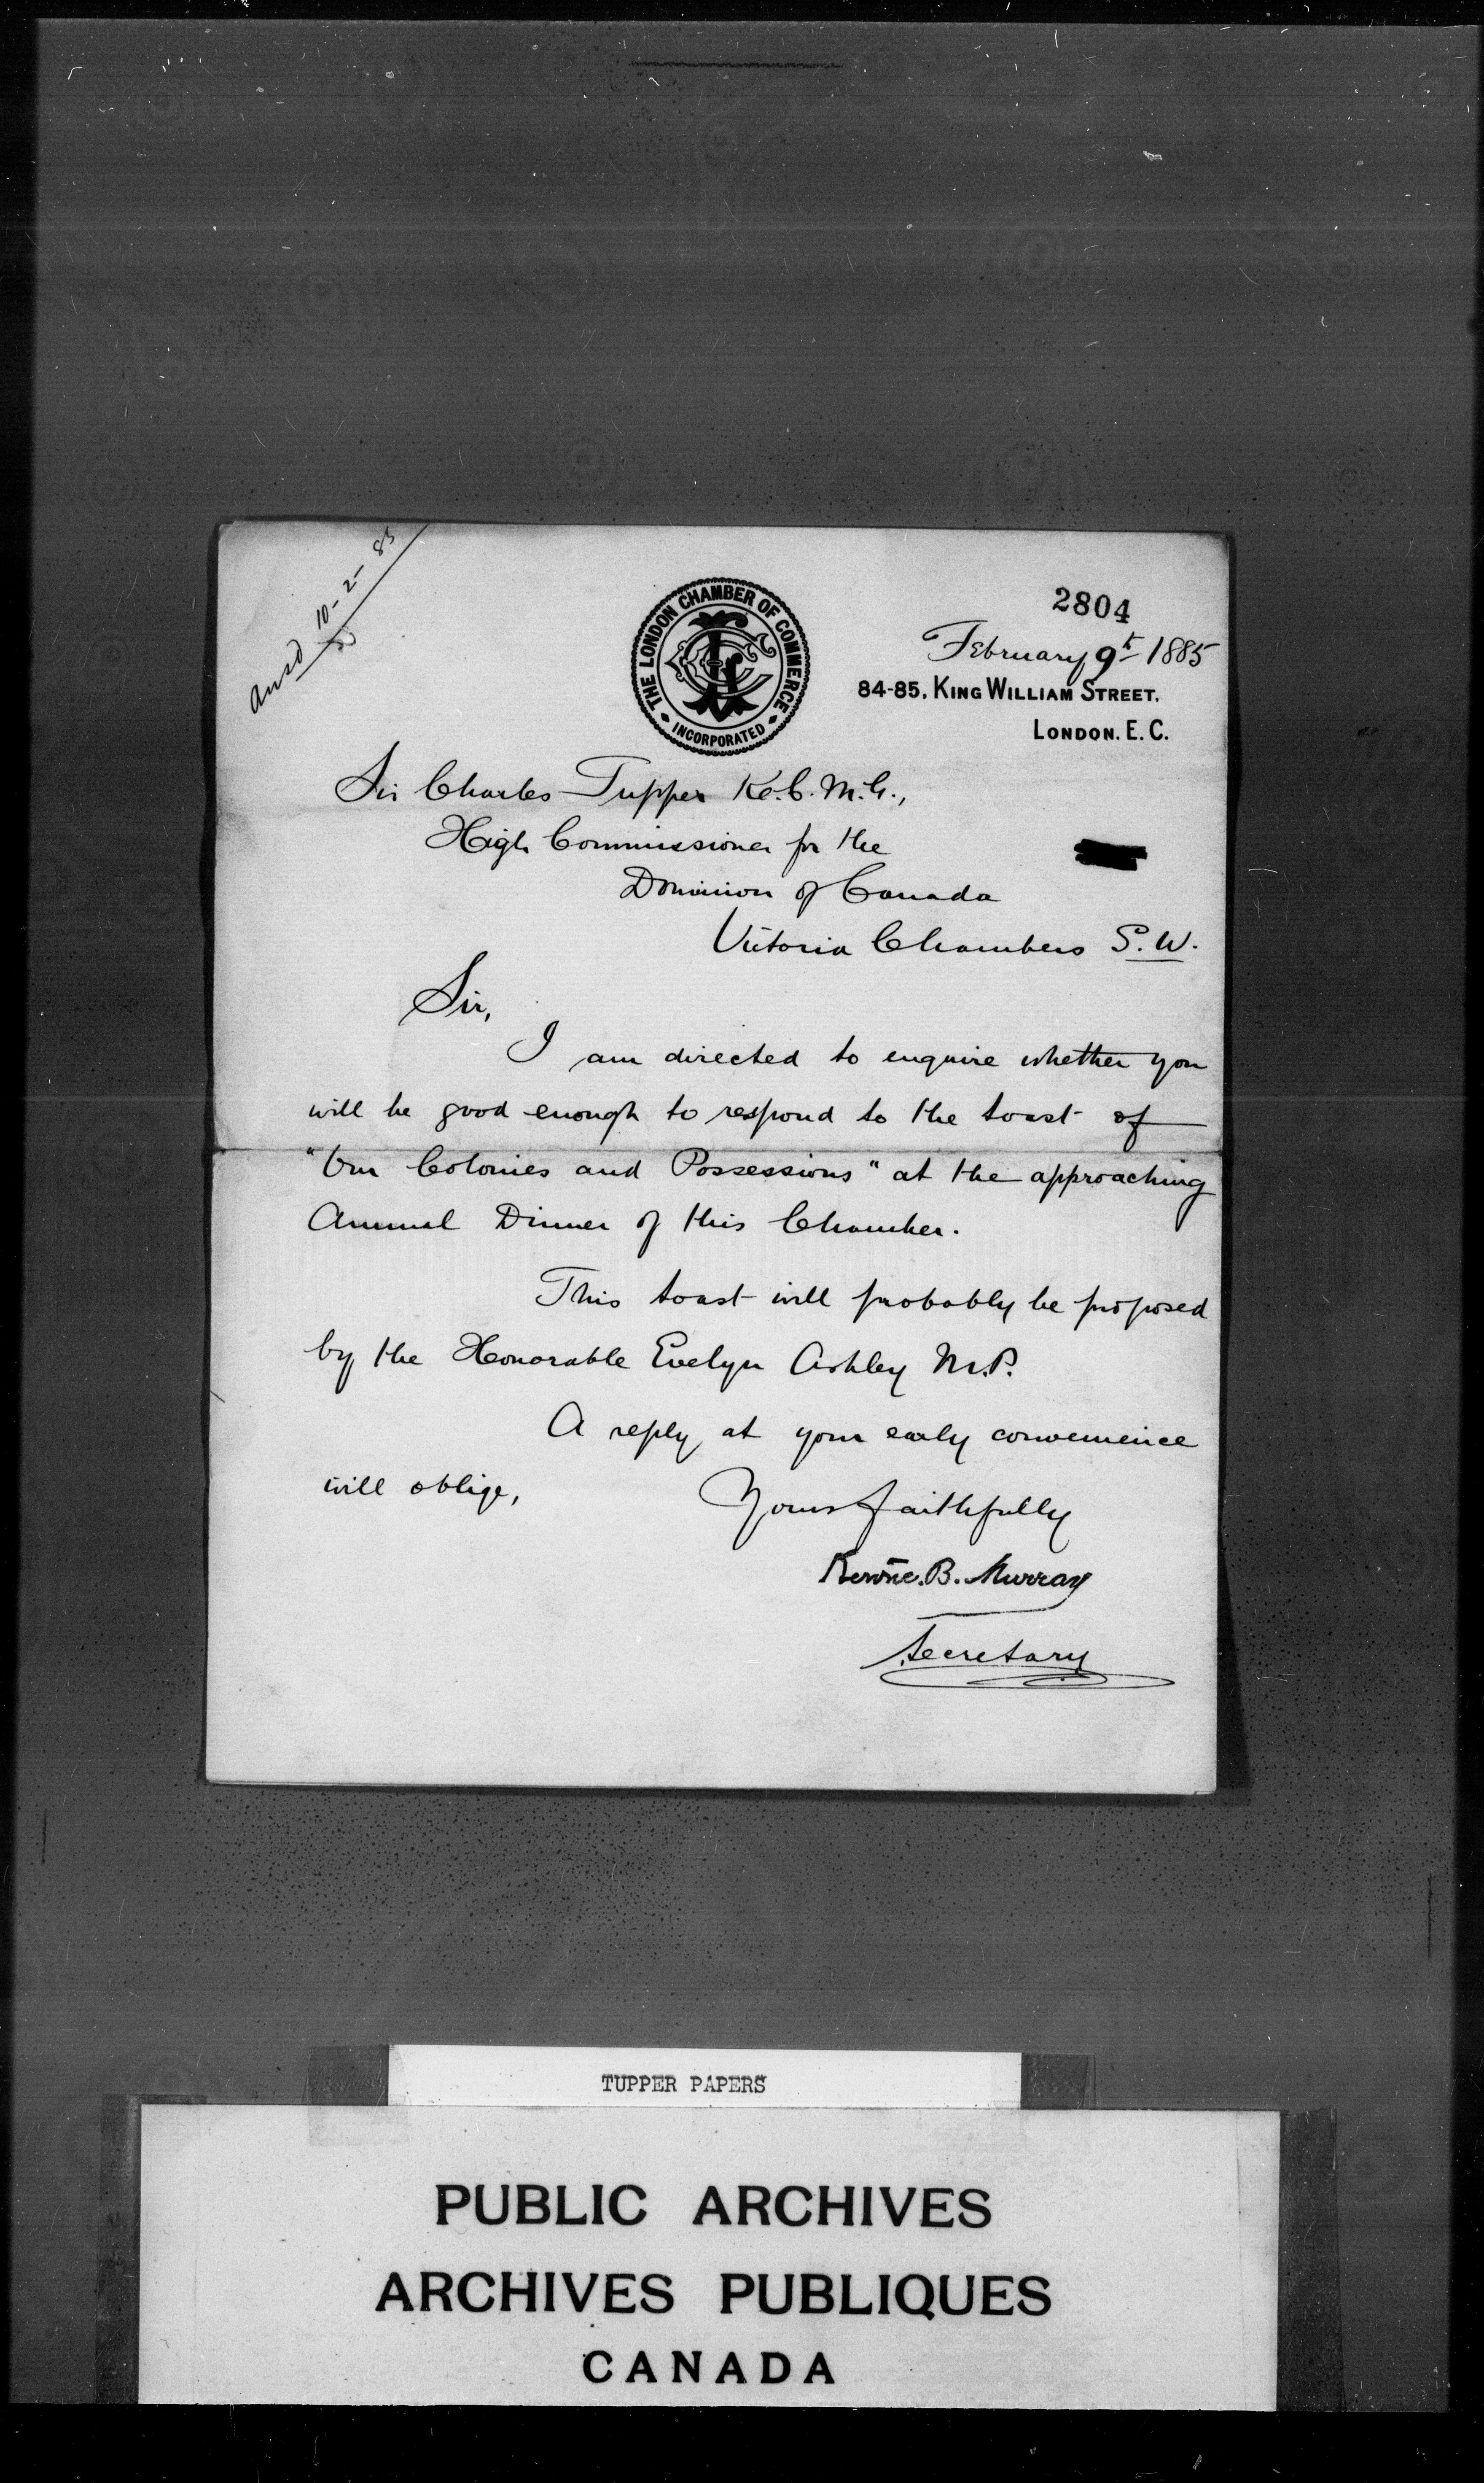 Ansd 10-2-85
THE LONDON CHAMBER OF COMMERCE
INCORPORATED
2804
February 9th 1885
84-85, KING WILLIAM STREET,
LONDON. E. C.
Sir Charles Tupper K.C.M.G.,
High Commissioner for the
Dominion of Canada
Victoria Chambers S.W.
Sir,
I am directed to enquire whether you
will be good enough to respond to the toast of
"Our Colonies and Possessions" at the approaching
Annual Dinner of this Chamber.
This toast will probably be proposed
by the Honorable Evelyn Ashley M.P.
A reply at your early convenience
will oblige,
Yours faithfully
B. Murray
Secretary
TUPPER PAPERS
PUBLIC ARCHIVES
ARCHIVES PUBLIQUES
CANADA